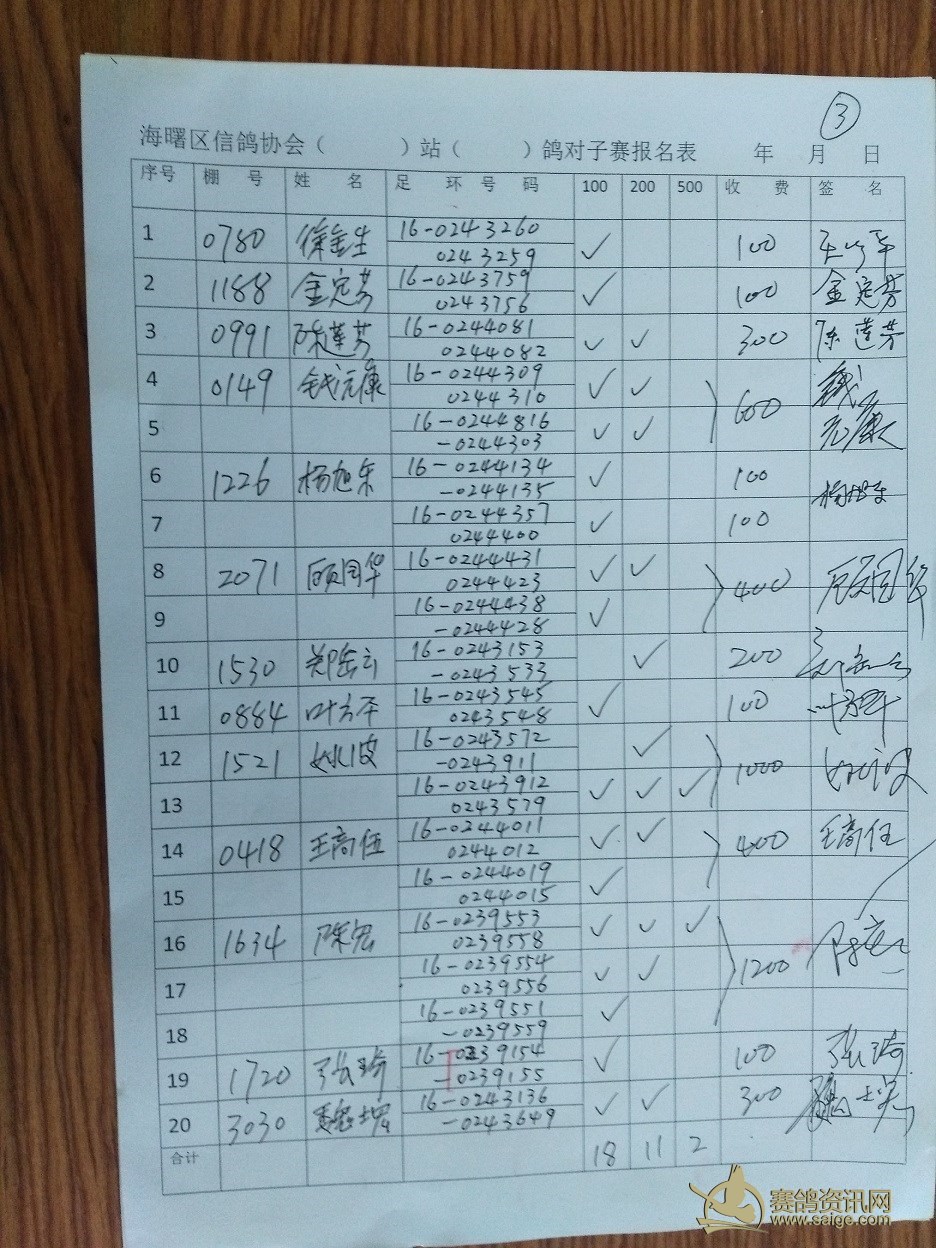 ③
海曙区信鸽协会（ ）站（ ）鸽对子赛报名表 年 月 日
序号 棚 号 姓 名 足 环 号 码 100 200 500 收 费 签 名
1 0780 徐金生 16-0243260 ✓ 100
0243259
2 1188 金定芬 16-0243759 ✓ 100 金定芬
0243756
3 0991 陈莲芳 16-0244081 ✓ ✓ 300 陈莲芳
0244082
4 0149 钱元康 16-0244309 ✓ ✓ 600 钱
0244310
5 16-0244816 ✓ ✓ 元康
-0244303
6 1226 杨旭东 16-0244134 ✓ 100 杨旭东
-0244135
7 16-0244357 ✓ 100
0244400
8 2071 顾国华 16-0244431 ✓ ✓ 400 顾国华
0244423
9 16-0244438 ✓
-0244428
10 1530 16-0243153 ✓ 200
-0243533
11 0884 叶方平 16-0243545 ✓ 100
0243548
12 1521 16-0243572 ✓ 1000
-0243911
13 16-0243912 ✓ ✓ ✓
0243579
14 0418 王高伍 16-0244011 ✓ ✓ 400 王高伍
0244012
15 16-0244019 ✓
0244015
16 1634 陈宏 16-0239553 ✓ ✓ ✓ 1200 陈宏
0239558
17 16-0239554 ✓ ✓
0239556
18 16-0239551 ✓
-0239559
19 1720 张琦 16-0239154 ✓ 100 张琦
-0239155
20 3030 16-0243136 ✓ ✓ 300
-0243649
合计 18 11 2
赛鸽资讯网
www.saige.com